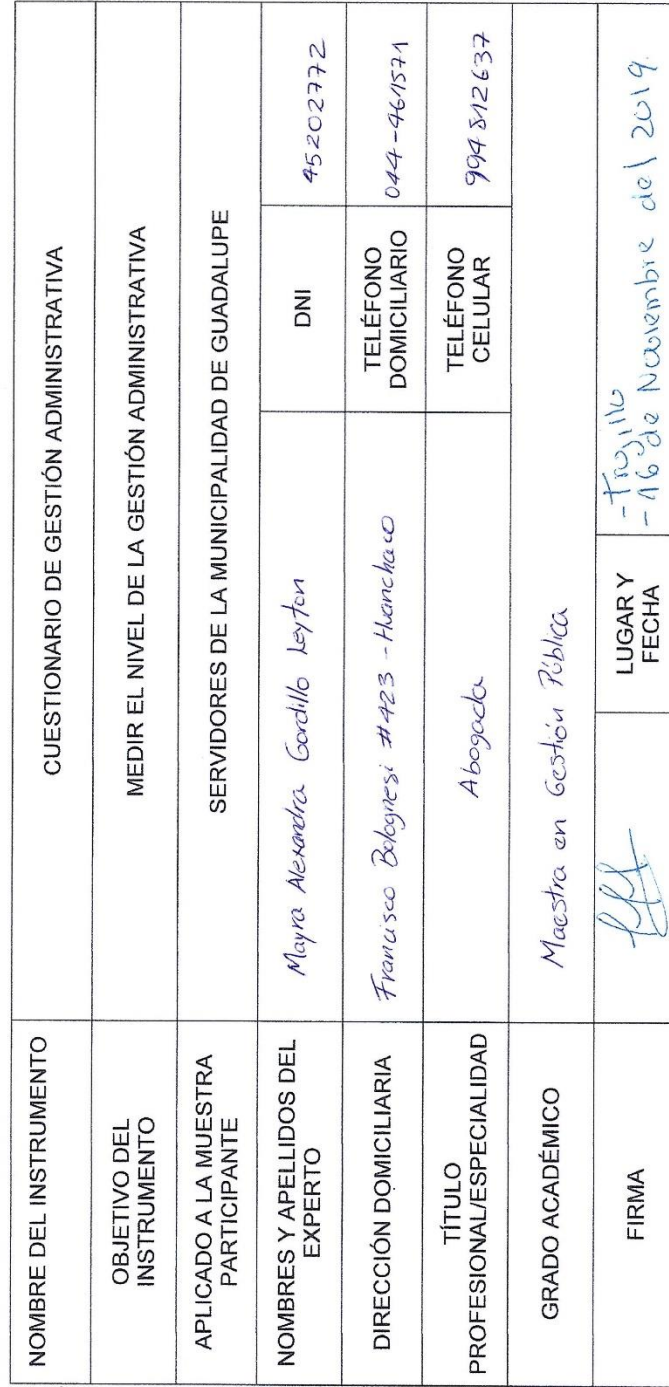 NOMBRE DEL INSTRUMENTO
CUESTIONARIO DE GESTIÓN ADMINISTRATIVA
OBJETIVO DEL
INSTRUMENTO
MEDIR EL NIVEL DE LA GESTIÓN ADMINISTRATIVA
APLICADO A LA MUESTRA
PARTICIPANTE
SERVIDORES DE LA MUNICIPALIDAD DE GUADALUPE
NOMBRES Y APELLIDOS DEL
EXPERTO
Mayra Alexandra Gordillo Leyton
DNI
45202772
DIRECCIÓN DOMICILIARIA
Francisco Bolognesi #423 - Huanchaco
TELÉFONO
DOMICILIARIO
044-461571
TÍTULO
PROFESIONAL/ESPECIALIDAD
Abogada
TELÉFONO
CELULAR
994812637
GRADO ACADÉMICO
Maestra en Gestión Pública
FIRMA
LUGAR Y
FECHA
- Trujillo
- 16 de Noviembre del 2019.